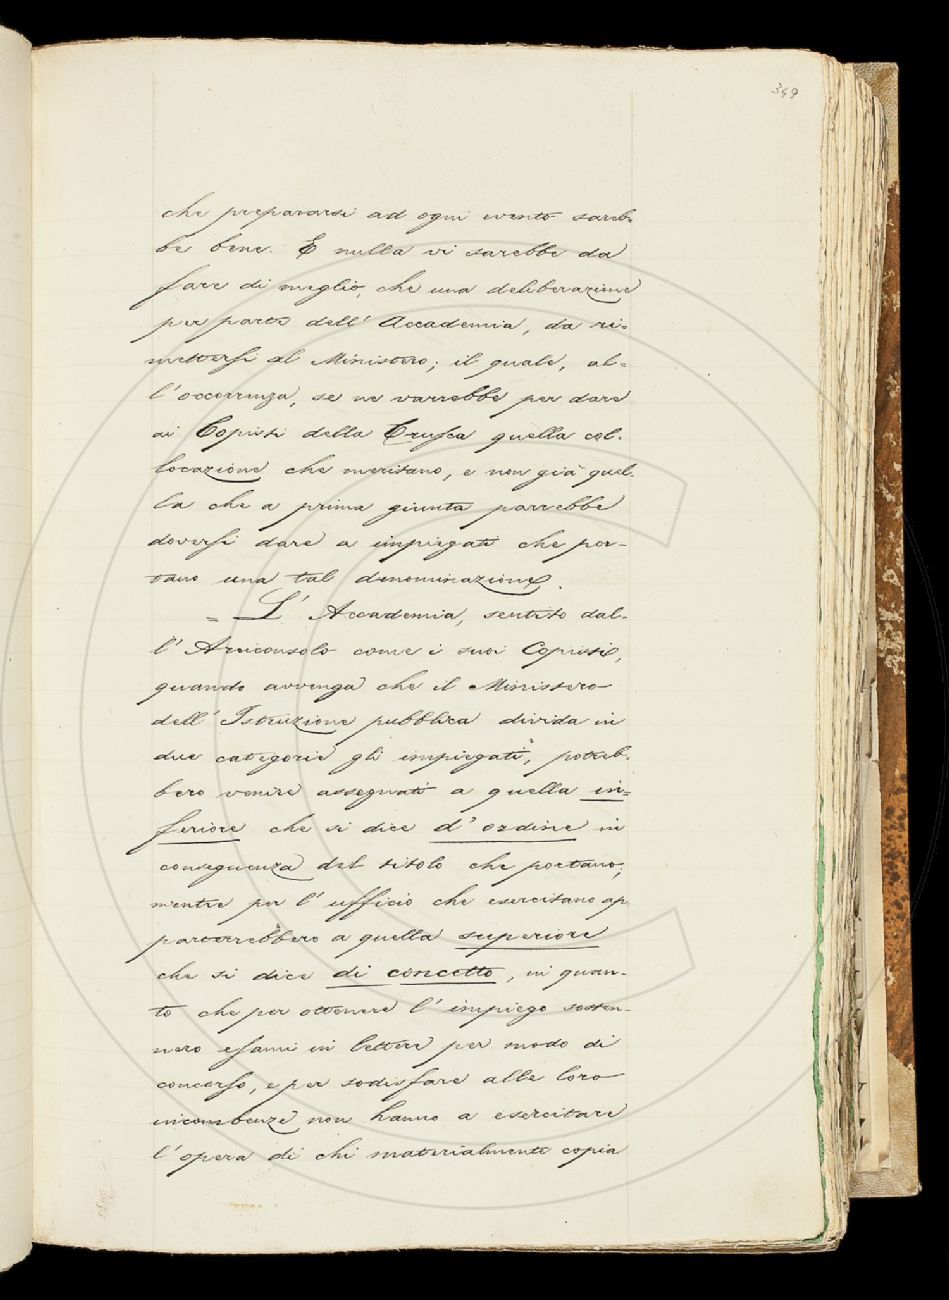 349
che prepararsi ad ogni evento sareb-
be bene. E nulla vi sarebbe da
fare di meglio, che una deliberazione
per parte dell' Accademia, da ri=
mettersi al Ministero; il quale, al=
l'occorrenza, se ne varrebbe per dare
ai Copisti della Crusca quella col-
locazione che meritano, e non già quel-
la che a prima giunta parrebbe
doversi dare a impiegati che por-
tano una tal denominazione.
= L' Accademia, sentito dal-
l' Arciconsolo come i suoi Copisti,
quando avvenga che il Ministero
dell' Istruzione pubblica divida in
due categorie gli impiegati, potreb-
bero venire assegnati a quella in=
feriore che si dice d' ordine in
conseguenza del titolo che portano;
mentre per l' ufficio che esercitano ap
parterrebbero a quella superiore
che si dice di concetto, in quan-
to che per ottenere l' impiego sosten-
nero esami in lettere per modo di
concorso, e per sodisfare alle loro
incombenze non hanno a esercitare
l' opera di chi materialmente copia